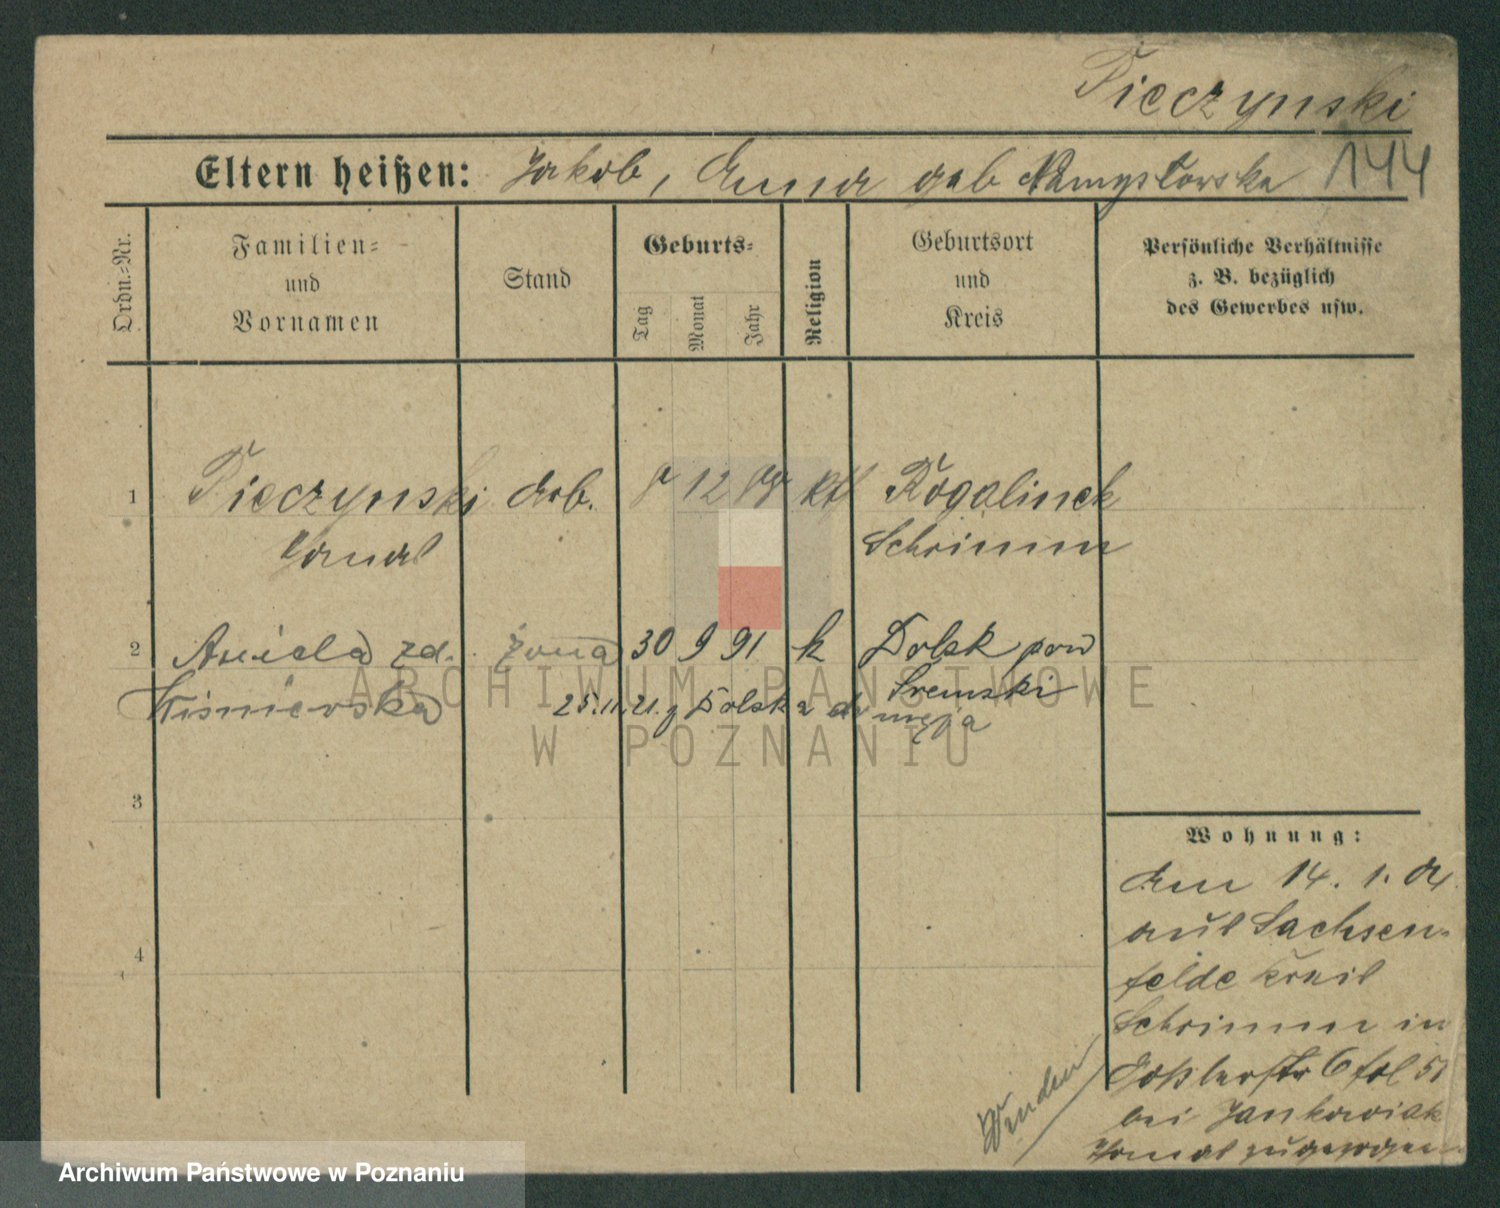 Pieczynski
Eltern heißen: Jakob, Anna geb Namysłowska 144
Ordn.-Nr.
Familien-
und
Vornamen
Stand
Geburts-
Tag
Monat
Jahr
Religion
Geburtsort
und
Kreis
Persönliche Verhältnisse
z. B. bezüglich
des Gewerbes usw.
1 Pieczynski Arb. 12 kth Rogalinek
Schrimm
2 Aniela zd. żona 30 9 91 k Dolsk pow
Wiśniewska Śremski
25.11.21. z Dolska do męża
3
4
Wohnung:
den 14. 1. 04
aus Sachsen-
felde Kreis
Schrimm in
6 bei Jankowiak
zugezogen
Wenden
ARCHIWUM PAŃSTWOWE
W POZNANIU
Archiwum Państwowe w Poznaniu